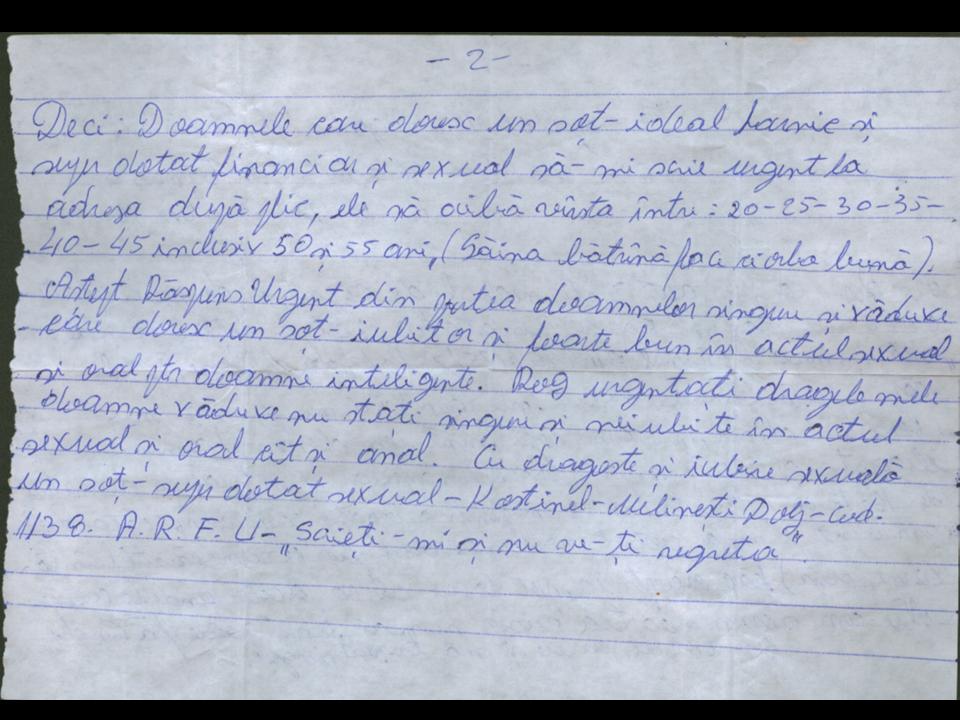 - 2 -
Deci: Doamnele care doresc un soț-ideal harnic și
supr dotat financiar și sexual să-mi scrie urgent la
adresa după plic, ele să aibă vârsta între: 20-25-30-35-
40-45 inclusiv 50 și 55 ani, (Găina bătrînă face ciorba bună).
Aștept Răspuns Urgent din partea doamnelor singure și văduve
care doresc un soț-iubitor și foarte bun în actul sexual
și oral ptr doamne inteligente. Rog urgentați dragele mele
doamne văduve nu stați singure și neiubite în actul
sexual și oral cît și anal. Cu dragoste și iubire sexuală
un soț-supr dotat sexual-Kostinel-Melinești Dolj-cod.
1138. A. R. F. U-„Scrieți-mi și nu ve-ți regreta"